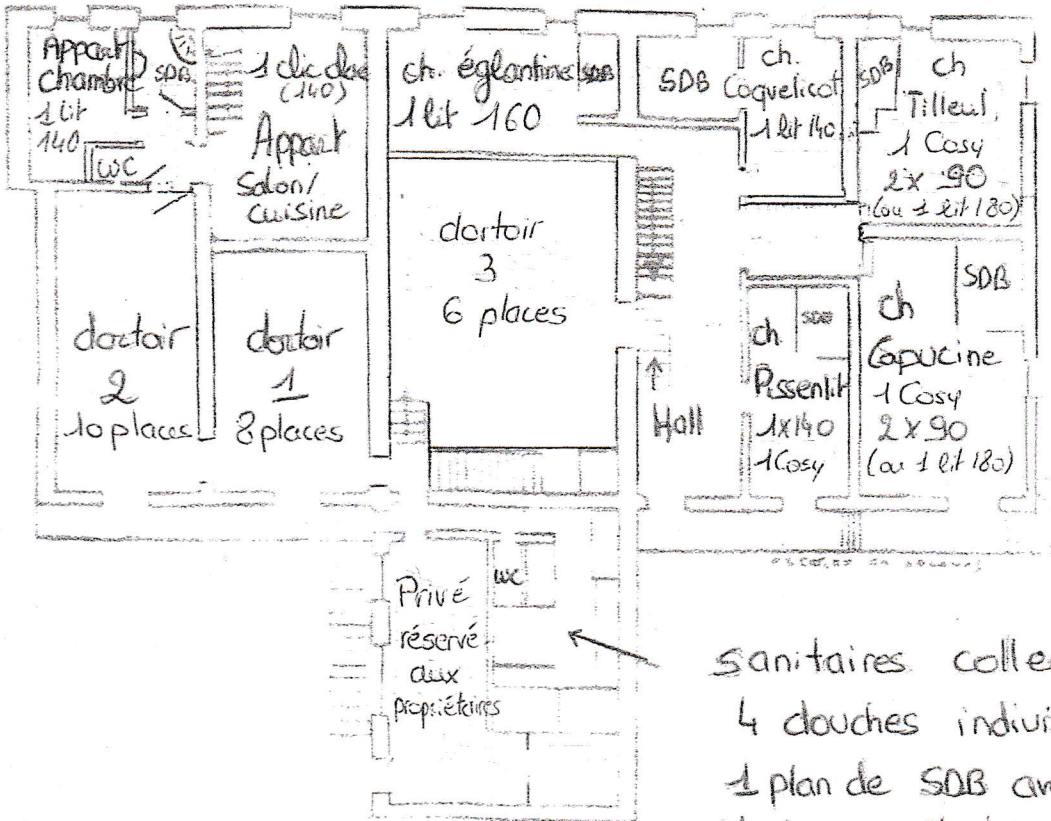 Appart
chambre
1 lit
140
SDB
WC
1 clic clac
(140)
Appart
Salon/
cuisine
ch. églantine
1 lit 160
SDB
SDB
ch.
Coquelicot
1 lit 140
SDB
ch
Tilleul
1 Cosy
2x 90
(ou 1 lit 180)
dortoir
2
10 places
dortoir
1
8 places
dortoir
3
6 places
Hall
ch.
SDB
Pissenlit
1x140
1 Cosy
ch
SDB
Capucine
1 Cosy
2 x 90
(ou 1 lit 180)
Privé
réservé
aux
propriétaires
WC
sanitaires colle
4 douches indivi
1 plan de SDB